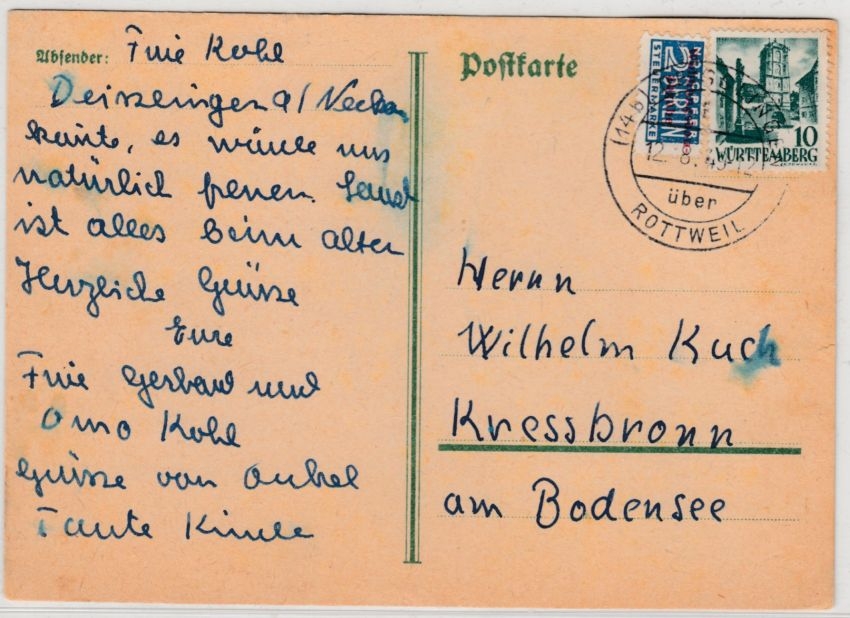 Absender: Frie Kohl
Deisslingen a/Neckar
könnte, es würde uns
natürlich freuen. Sonst
ist alles beim alten
Herzliche Grüsse
Eure
Frie Gerhard und
Omo Kohl
Grüsse von Onkel
Tante Kinde
Postkarte
NOTOPFER
2 BERLIN
STEUERMARKE
10
WÜRTTEMBERG
(14b)
12.8.49-12
über
ROTTWEIL
Herrn
Wilhelm Kuch
Kressbronn
am Bodensee